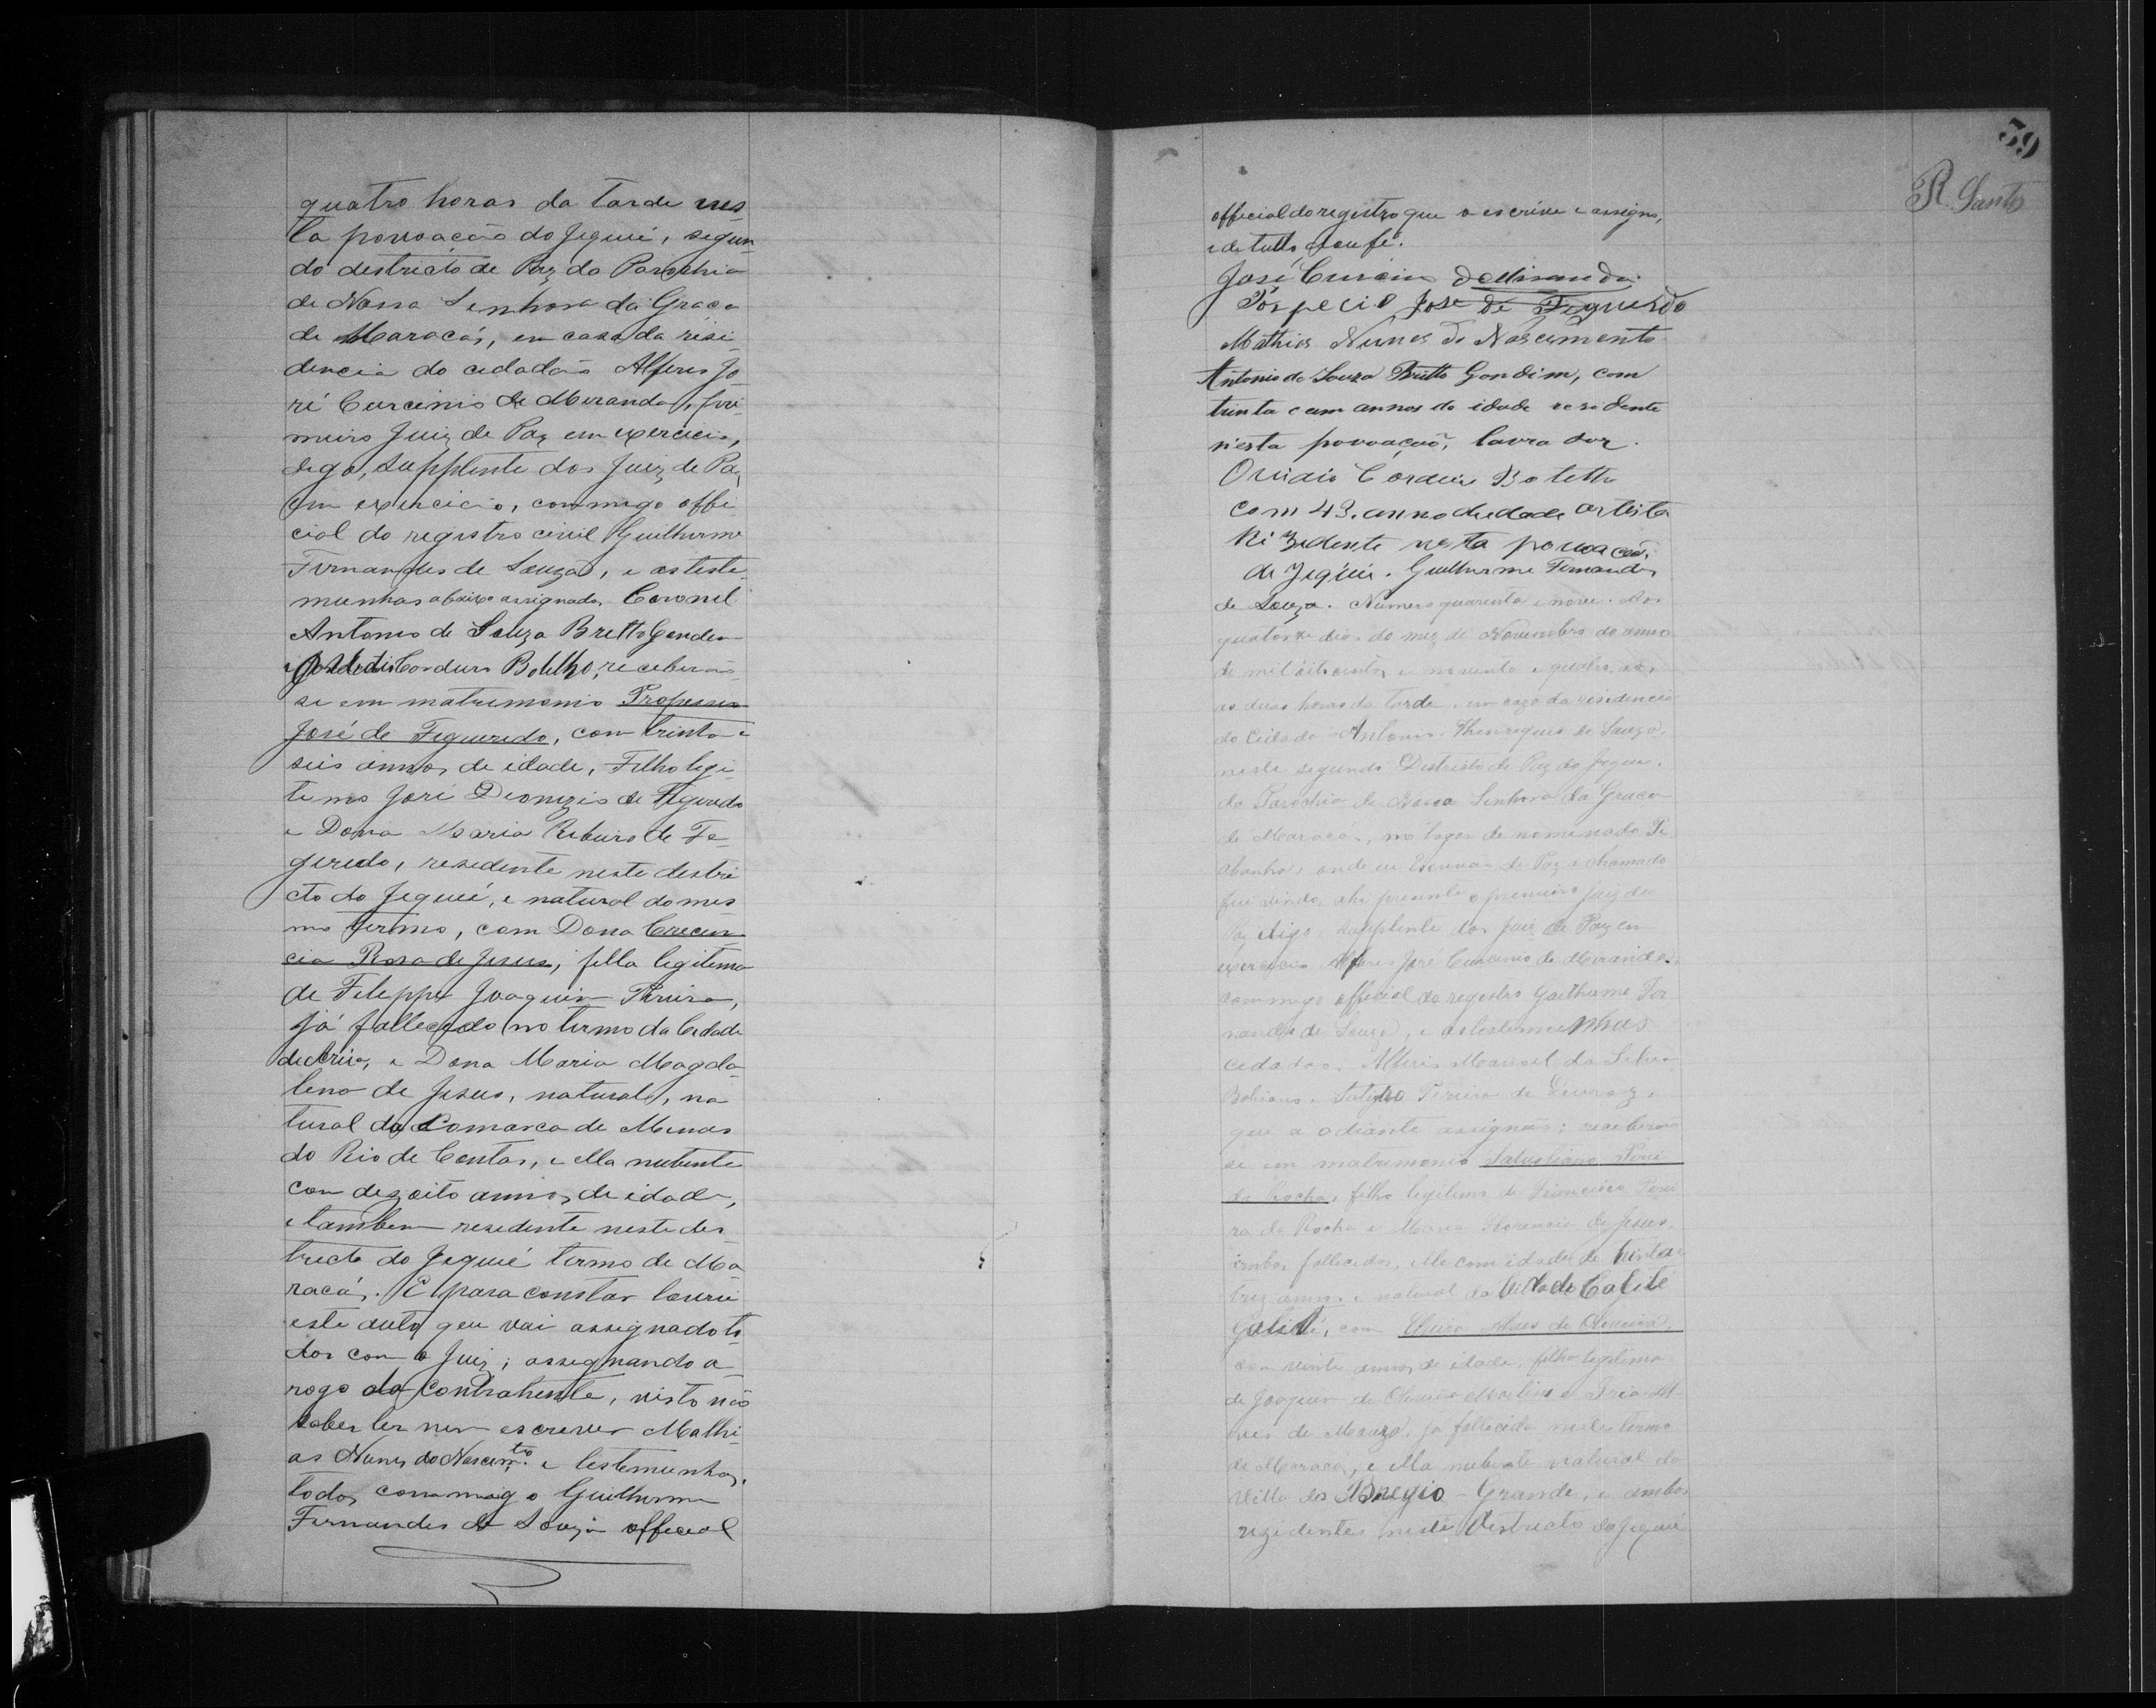 quatro horas da tarde nes
ta povoação do Jequié, segun
do destricto de Paz da Parochia
de Nossa Senhora da Graça
de Maracás, em casa da resi
dencia do cidadão Alferes Jo
sé Curcinio de Miranda, pri
meiro Juiz de Paz em exercicio,
digo, supplente dos Juiz de Paz
em exercicio, commigo offi
cial do registro civil Guilherme
Fernandes de Souza, e as teste
munhas abaixo assignado, Coronel
Antonio de Souza Britto Gondin
Cordeiro Botelho, receberão
se em matrimonio
José de Figueredo, com trinta e
seis annos de idade, Filho legi
timo José Dionizio de Figueredo
e Dona Maria Ribeiro de Fi
geredo, resedente neste destri
cto do Jequié, e natural do mes
mo termo, com Dona Crecen
cia Rosa de Jesus, filla legitima
de Felippe Joaquim
já fallecido no termo da Cidade
e Dona Maria Magda
lena de Jesus, natural, na
tural da Comarca de Minas
do Rio de Contas, e ella nubente
com dezoito annos de idade,
e tambem resedente neste des
tricto do Jequié termo de Ma
racás. E para constar lavrei
este auto que vai assignado to
dos com o Juiz; assegnando a
rogo da contrahente, visto não
saber ler nem escrever Mathi
as Nunes do Nascimto. e testemunhas,
todos commigo Guilherme
Fernandes de Souza official
59
R. Santos
official do registro que o escrivi e assigno,
e de tudo dou fé.
José Curcinio de Miranda
José de Figueredo
Mathias Nunes do Nascimento
Antonio de Souza Britto Gondim, com
trinta e um annos de idade residente
n'esta povoação, lavrador.
Cordeiro Botelho
com 43. anno de edade artista
Rizedente nesta povoacão
de Jequié. Guilherme Fernandes
de Souza. Numero quarenta e nove. Aos
quatorze dias do mez de Novembro do anno
de mil oitocentos e noventa e quatro, as
as duas horas da tarde, em caza da residencia
do Cidadão Antonio Henriques de Souza,
neste segundo Destricto de Paz do Jequié,
da Parochia de Nossa Senhora da Graça
de Maracás, no logar denominado
onde eu Escrivão de Paz a chamado
fui vindo, ahi presente o premeiro Juiz de
Paz digo supplente dos Juiz de Paz em
exercicio Alferes José Curcinio de Miranda,
commigo official do registro Guilherme Fer
nandes de Souza, e as testemunhas
cedadãos Alferes Manoel da Silva
Pereira de
que a adiante assignão; receberão
se em matrimonio Salustiano
da Rocha, filho legitimo de Francisco
ra da Rocha e Maria Florencia de Jesus,
ambos fallecidos, elle com idade de trinta e
trez annos e natural da Villa de
com Alves de Oliveira,
com vinte annos de idade, filha legitima
de Joaquim de Oliveira Martins e
ves de Souza, já fallecida neste termo
de Maracás, e ella nubente natural da
Villa do Grande, e ambos
rezidentes neste destricto do Jequié